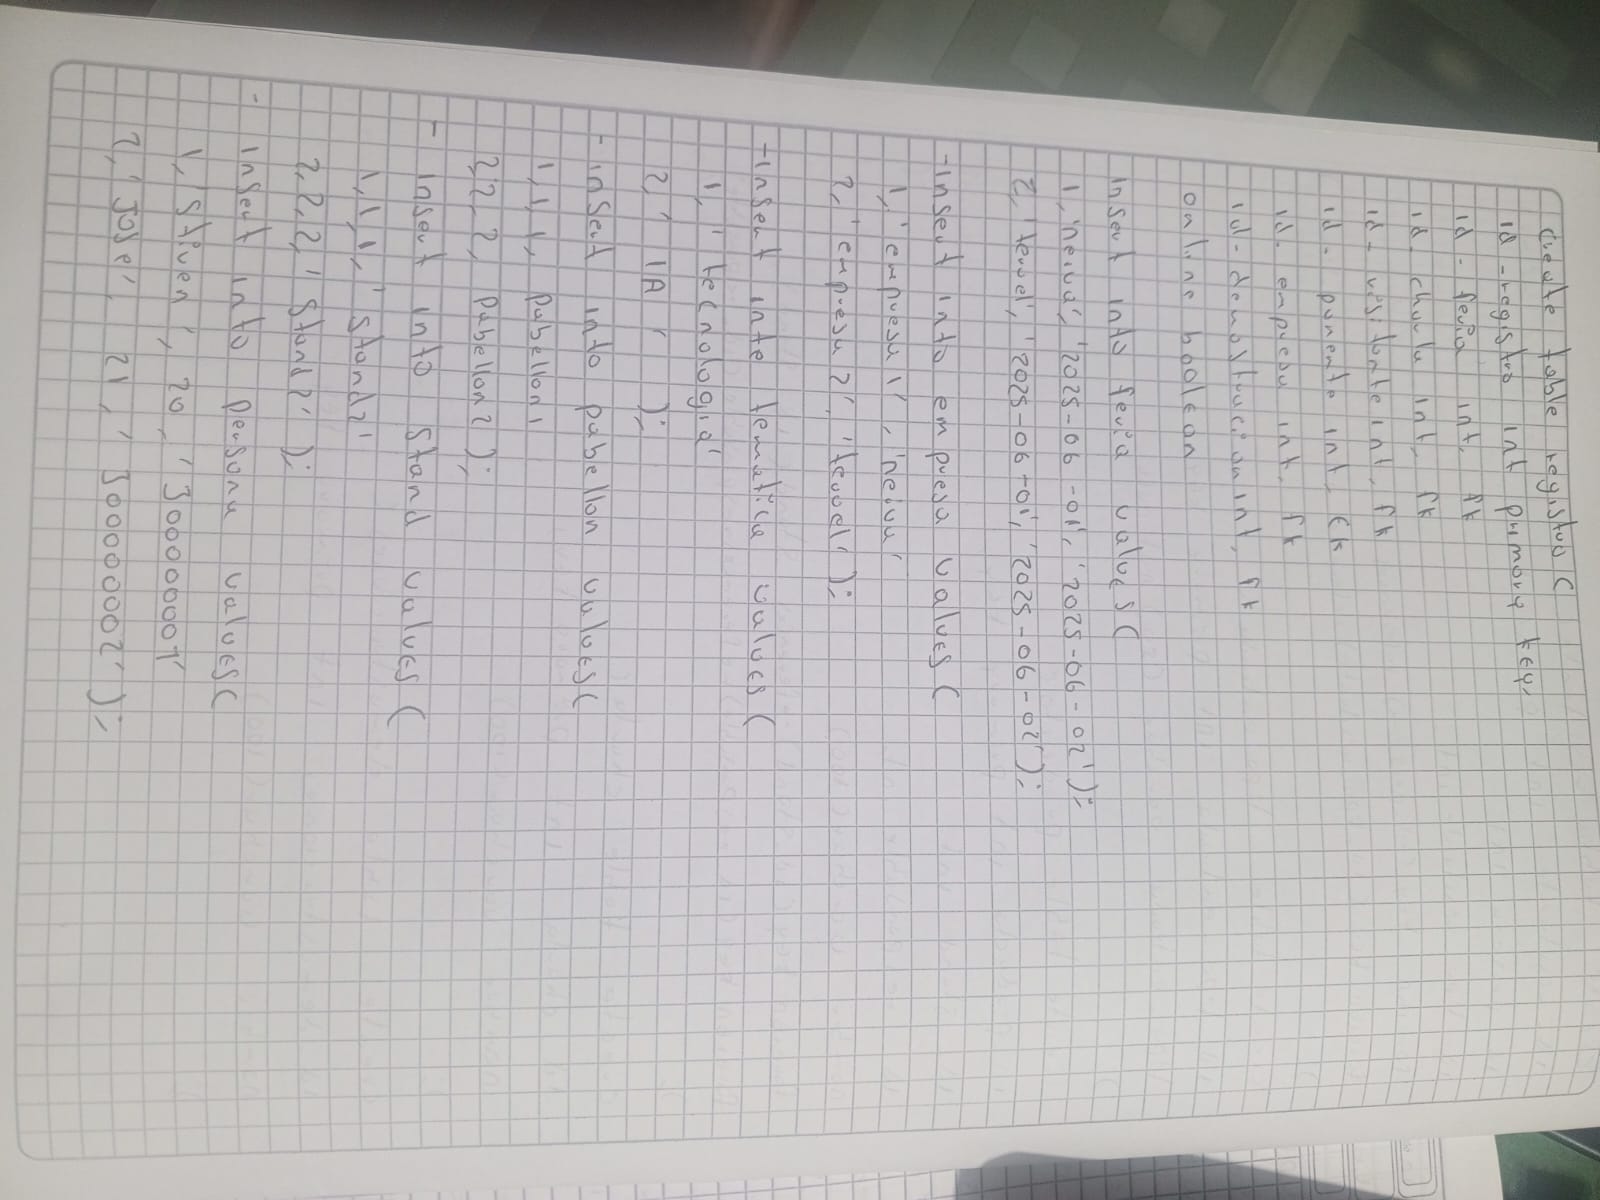 create table registro (
id-registro int primary key,
id-feria int, fk
id-charla int, fk
id-visitante int, fk
id-ponente int, fk
id-empresa int, fk
id-demostracion int, fk
online boolean
insert into feria values (
1, 'neiva', '2025-06-01', '2025-06-02');
2, 'teruel', '2025-06-01', '2025-06-02');
-insert into empresa values (
1, 'empresa 1', 'neiva'
2, 'empresa 2', 'teruel');
-insert into tematica values (
1, 'tecnologia'
2, 'IA' );
-insert into pabellon values (
1, 1, 1, pabellon 1
2, 2, 2, pabellon 2);
- insert into stand values (
1, 1, 1, 'stand 2'
2, 2, 2, 'stand 2' );
- insert into persona values (
1, 'stiven', 20, '300000001'
2, 'jose', 21, '300000002' );